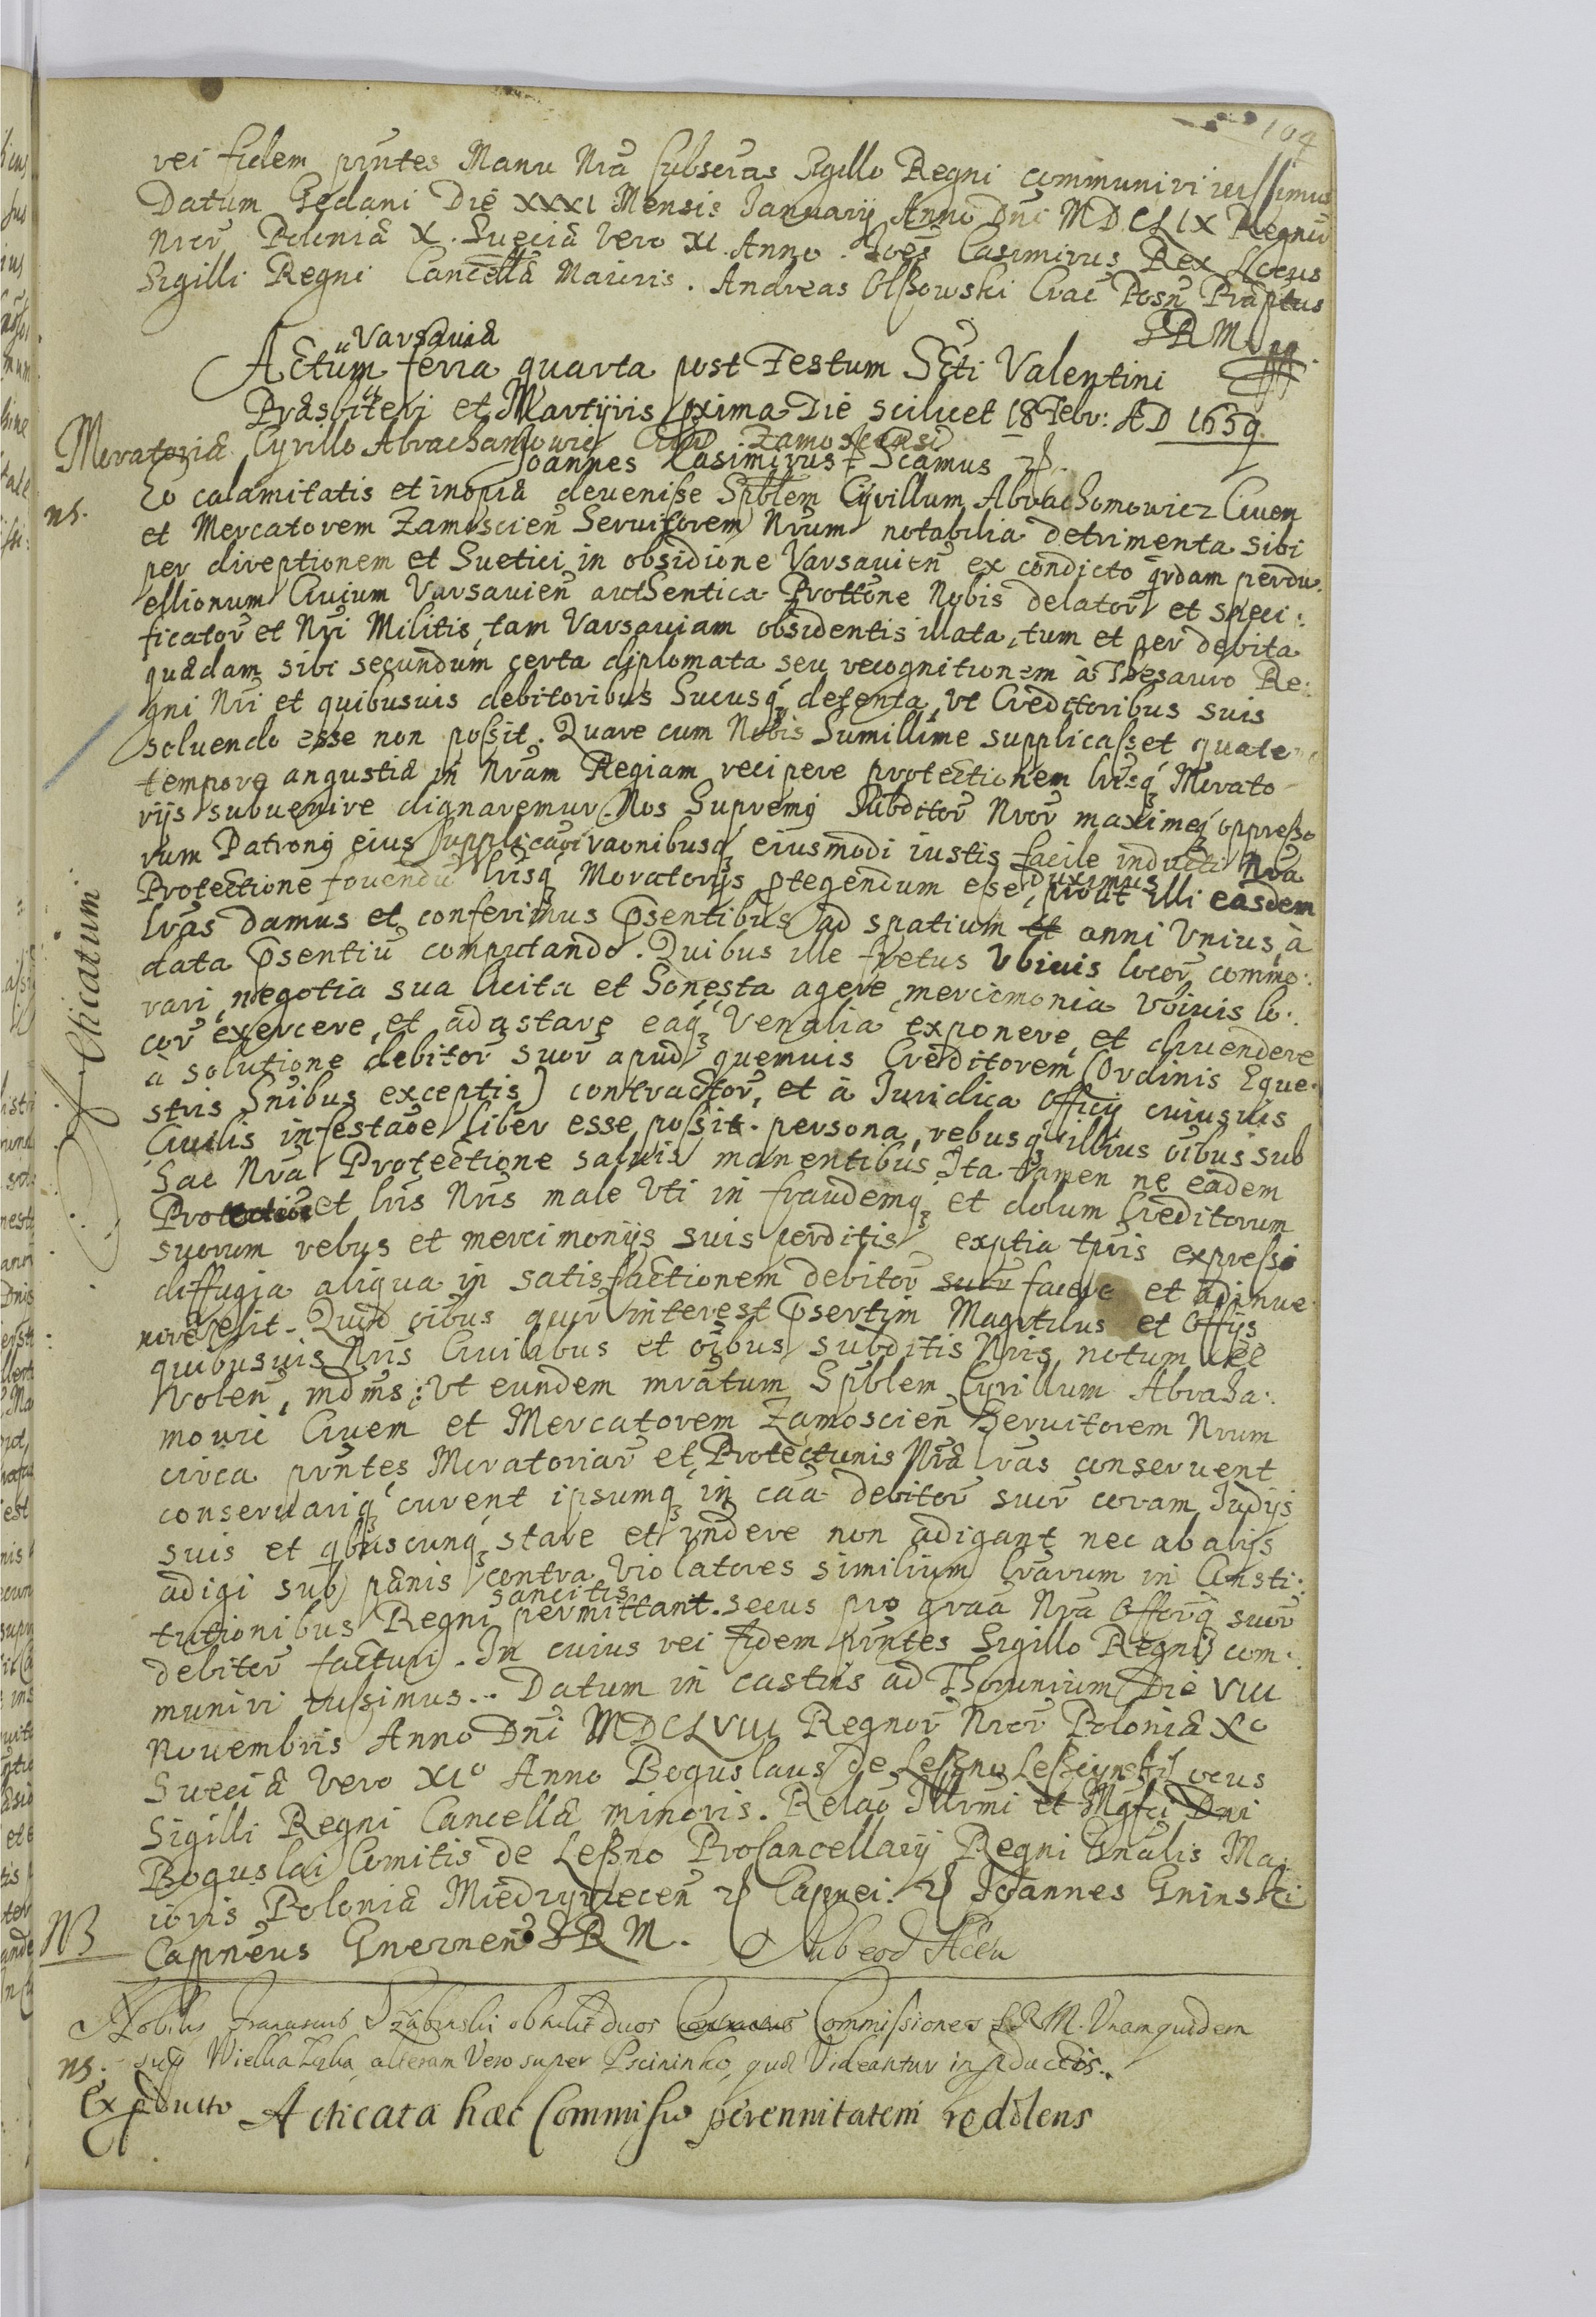 104
rei fidem pñtes Manu Nrã subseras Sigillo Regni communiri iussimus
Datum Gedani Die XXXI Mensis Januarij Anno Dni MDCLIX Regnor̃
Nror̃ Poloniæ X. Sueciæ Vero XI. Anno. Joẽs Casimirus Rex Locus
Sigilli Regni Cancellæ Maioris. Andreas Olßowski Crac̃ Posñ Præptus
S R M mp
Actum Varsaviæ feria quarta post Festum Scti Valentini
Præsbiteri et Martÿris pxima Die scilicet 18 Febr: AD 1659
Moratoria Cyrillo Abrachamowic Civi Zamoscensi
Joannes Casimirus Scãmus
Eo calamitatis et inopiæ devenisse Spblem Cyrillum Abrachomowicz Civem
ns.
et Mercatorem Zamoscieñ Servitorem Nrum notabilia detrimenta sibi
per direptionem et Suetici in obsidione Varsavieñ ex condicto qrdam perdu:
ellionum Civium Varsavieñ authentica Prottõne Nobis delator̃ et speci:
ficator̃ et Nri Militis, tam Varsaviam obsidentis illata, tum et per debita
quædam sibi secundum certa diplomata seu recognitionem à Thesauro Re:
gni Nri et quibusvis debitoribus hucusq detenta, vt Creditoribus suis
solvendo esse non possit. Quare cum Nobis humillime supplicasset quate
tempore angustiæ in Nram Regiam recipere protectionem lrisq Morato
rijs subvenire dignaremur. Nos Supremq Subditor̃ Nror̃ maximeq oppresso
rum Patronq eius supplicaõi raõnibusq eiusmodi iustis facile inducti Nra
Protectione fovendũ lrisq Moratorijs ptegendum esse duximus, prout illi easdem
lras damus et conferimus psentibus ad spatium et anni Vnius à
data psentiũ computando. Quibus ille fretus Vbivis locor̃ commo:
rari, negotia sua licita et honesta agere, mercimonia vbivis lo:
cor̃ exercere, et adastare eaq Venalia exponere, et divendere
à solutione debitor̃ suor̃ apud quemvis Creditorem (Ordinis Eque:
stris hnibus exceptis) contractor̃, et à Juridica Officij cuiusvis
Civilis infestaõe liber esse possit. persona, rebusq illius oibus sub
hac Nra Protectione salvis manentibus Ita tamen ne eadem
Protectiõe et lris Nris male vti in fraudemq et dolum Creditorum
suorum rebus et mercimonijs suis perditis exptia tpris expressi
diffugia aliqua in satisfactionem debitor̃ suor̃ facere et adinve
nire velit. Quod oibus quor̃ interest psertim Magrtibus et Offijs
quibusvis Nris Civilibus et oibus subditis Nris notum eẽ
Voleñ, mdms: Vt eundem mratum Spblem Cyrillum Abraha:
mowic Civem et Mercatorem Zamoscieñ Servitorem Nrum
circa pñtes Moratoriar̃ et Protectionis Nræ lras conservent
conservariq curent ipsumq in caã debitor̃ suor̃ coram Judijs
suis et qbuscunq stare et rñdere non adigant nec ab alijs
adigi sub pænis contra violatores similium lrarum in Consti:
tutionibus Regni sancitis permittant. secus pro graã Nra Offorq suor̃
debitor̃ facturi. In cuius rei fidem pñtes Sigillo Regni com:
muniri iussimus. Datum in castris ad Thorunium Die VIII
Novembris Anno Dni MDCLVIII Regnor̃ Nror̃ Poloniæ Xo
Sueciæ Vero XIo Anno Boguslaus de Leßno Leßczynski Locus
Sigilli Regni Cancellæ minoris. Relaõ Illrmi et Mgfci Dni
Boguslai Comitis de Leßno Procancellarij Regni Gnalis Ma:
ioris Poloniæ Miedzyrzeceñ Capnei. Joannes Gninski
NB
Capneus Gnezneñ S R M. Sub eod Actu
Acticatum
Nobilis Franciscus obtulit duos Commissiones S R M. Vnam quidem
ns.
sup Wielka alteram Vero super Pscininko, quæ Videantur in pductis.
Ex pducto Acticata hæc Commissio perennitatem reddens